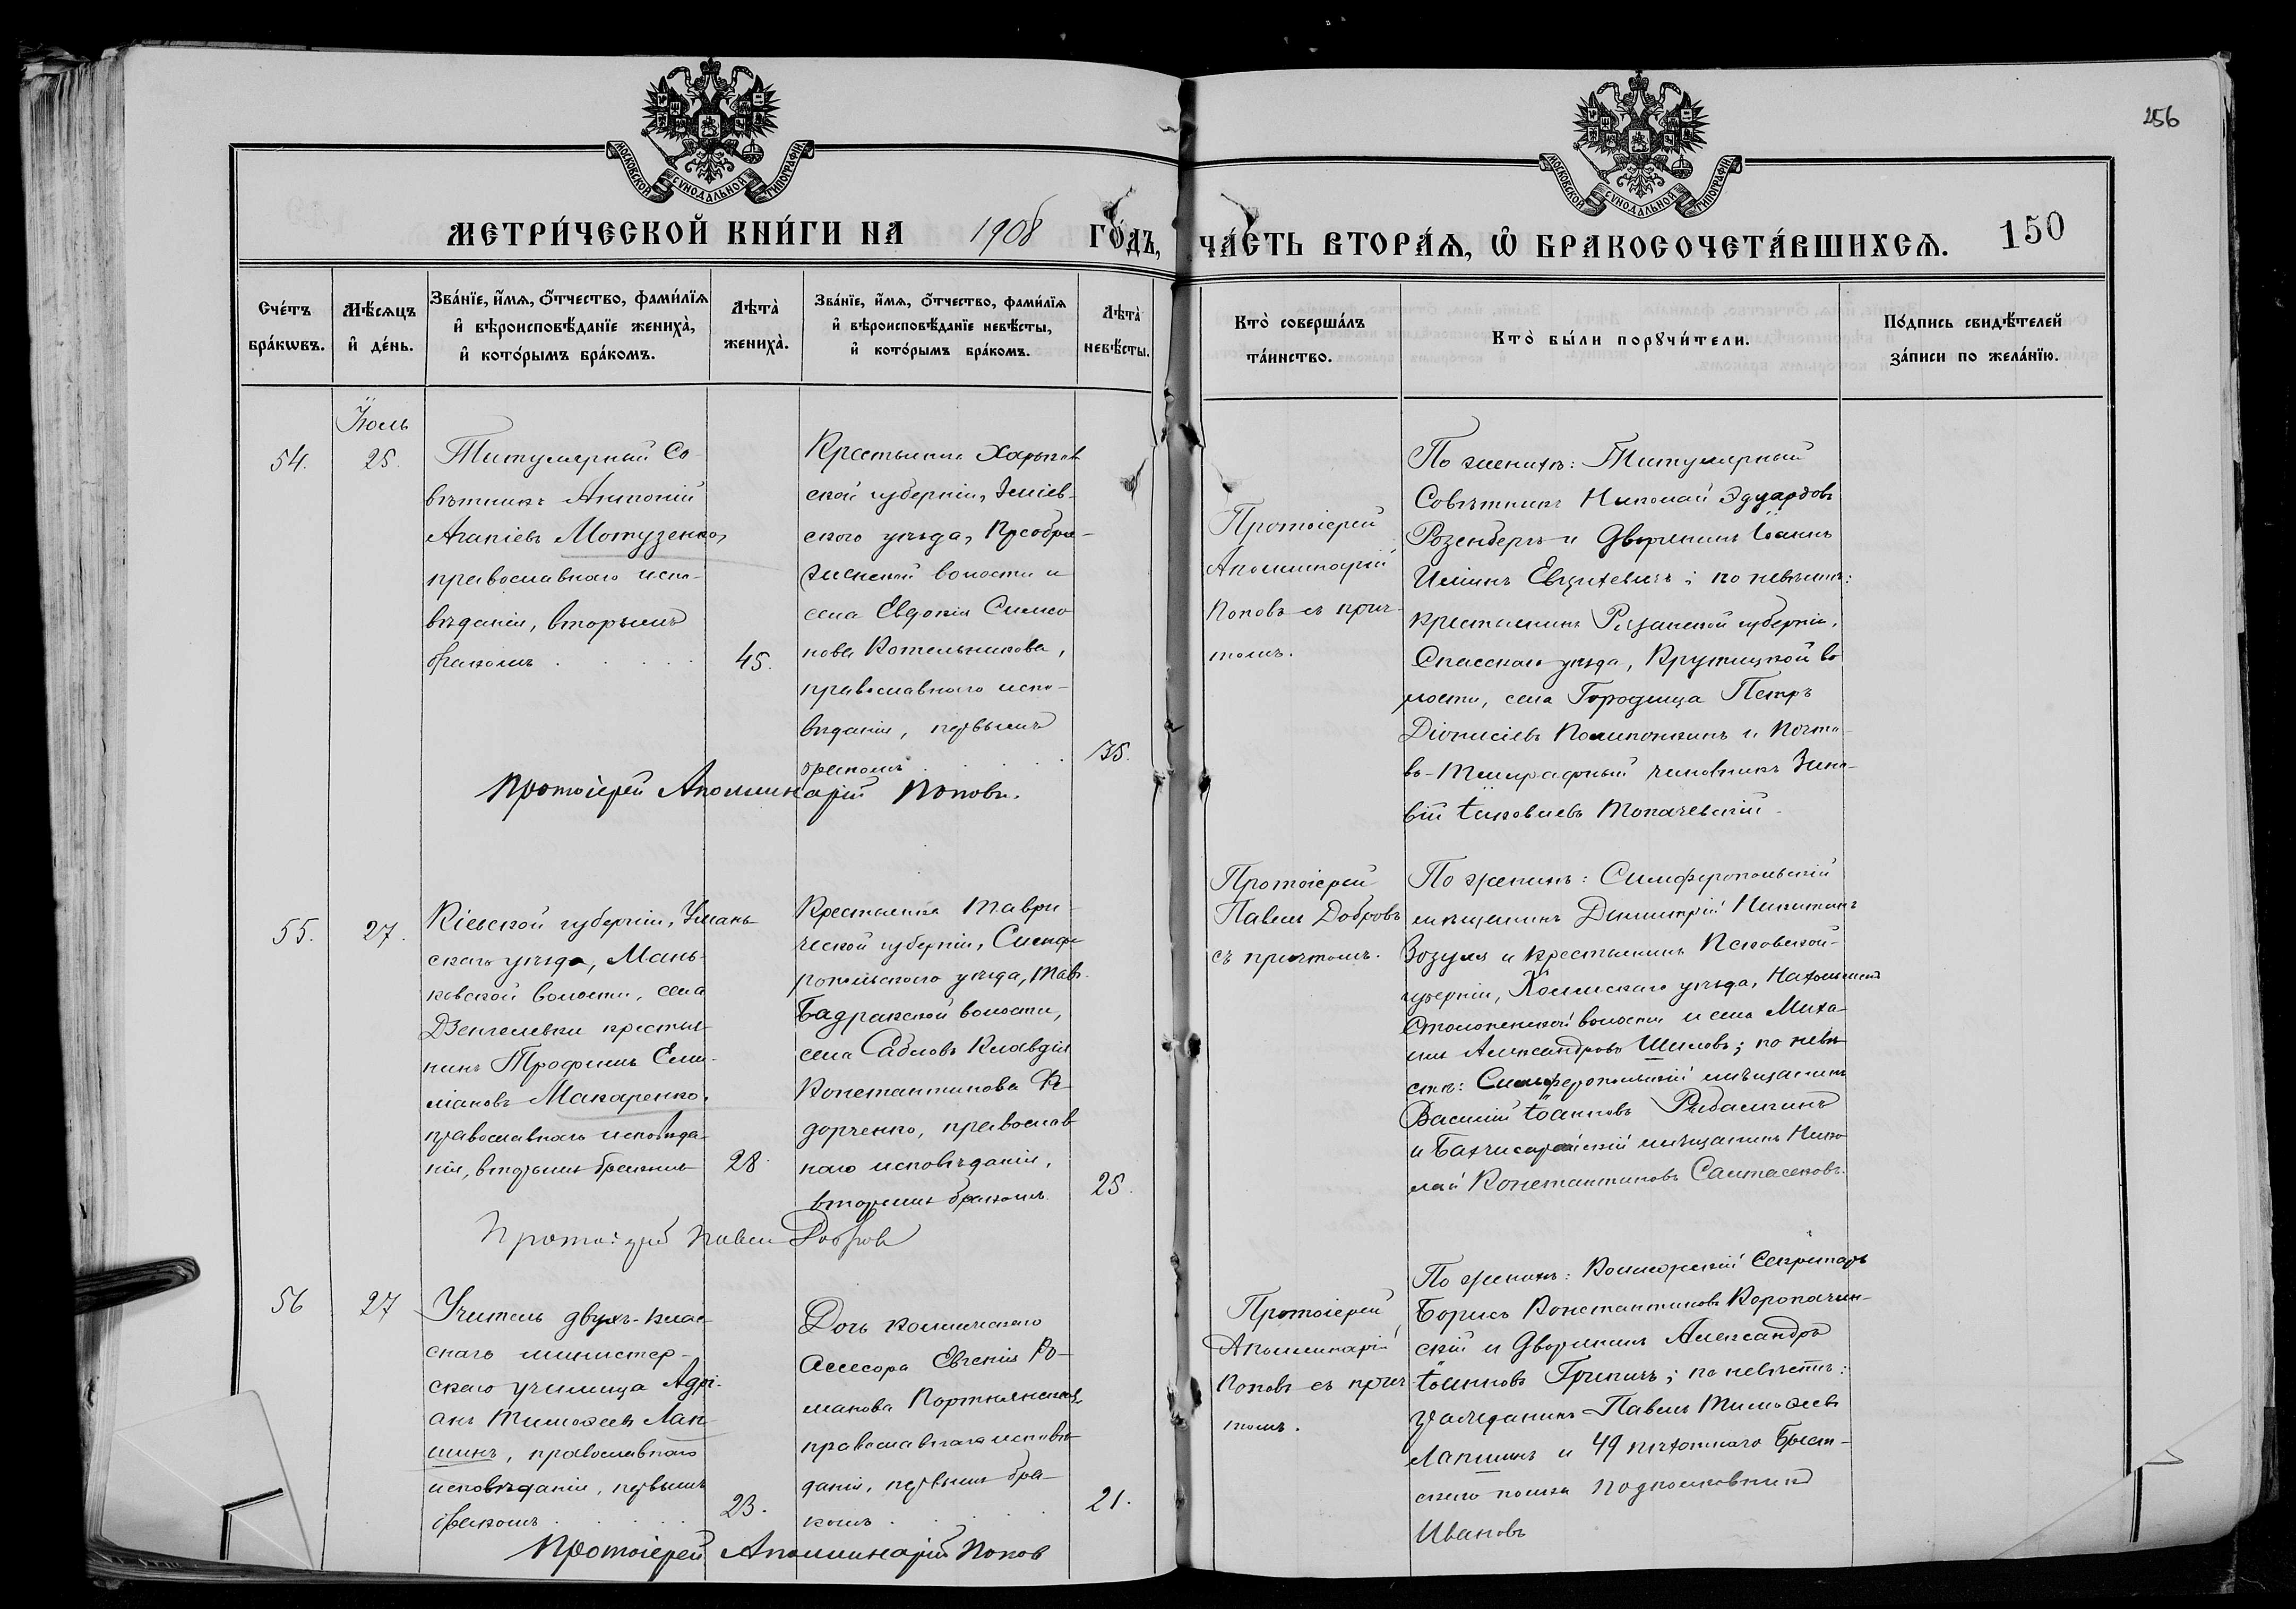 256
МОСКОВСКОЙ СѴНОДАЛЬНОЙ ТИПОГРАФІИ
МОСКОВСКОЙ СѴНОДАЛЬНОЙ ТИПОГРАФІИ
МЕТРИ́ЧЕСКОЙ КНИ́ГИ НА 1908 ГО́ДЪ, ЧА́СТЬ ВТОРА́Я, Ѡ БРАКОСОЧЕТА́ВШИХСЯ. 150
Сче́тъ
бра́кѡвъ.
Мѣ́сяцъ
и҆ де́нь.
Зва́нїе, и҆́мѧ, ѻ҆́тчество, фами́лїѧ
и҆ вѣроисповѣ́данїе жениха̀,
и҆ кото́рымъ бра́комъ.
Лѣта̀
жениха̀.
Зва́нїе, и҆́мѧ, ѻ҆́тчество, фами́лїѧ
и҆ вѣроисповѣ́данїе невѣ́сты,
и҆ кото́рымъ бра́комъ.
Лѣта̀
невѣ́сты.
Кто̀ соверша́лъ
та́инство.
Кто̀ бы́ли порꙋчи́тели.
По́дпись свидѣ́телей
за́писи по жела́нїю.
Іюль
54.
25.
Титулярный Со-
вѣтникъ Антоній
Агапіевъ Мотузенко,
православнаго испо-
вѣданія, вторымъ
бракомъ
45.
Крестьянка Харьков
ской губерніи, Зміев-
ского уѣзда, Преобра-
женской волости и
села Евдокія Симео
нова Котельникова,
православнаго испо-
вѣданія, первымъ
бракомъ
35.
Протоіерей
Аполлинарій
Поповъ съ прич-
томъ.
По женихѣ: Титулярный
Совѣтникъ Николай Эдуардовъ
Розенбергъ и Дворянинъ Іоаннъ
по невѣстѣ:
крестьянинъ Рязанской губерніи,
Спасскаго уѣзда, Крутицкой во
лости, села Городища Петръ
Діонисіевъ и Почто-
во-телеграфный чиновникъ Зино-
вій Іаковлевъ Топачевскій.
Протоіерей Аполлинарій Поповъ.
55.
27.
Кіевской губерніи, Умань-
скаго уѣзда, Мань-
ковской волости, села
Дзенгелевки крестья-
нинъ Трофимъ Еми-
ліановъ Макаренко,
православнаго исповѣда-
нія, вторымъ бракомъ
28.
Крестьянка Таври-
ческой губерніи, Симфе-
ропольскаго уѣзда, Тав-
Бадракской волости,
села Сабловъ Клавдія
Константинова Фе-
дорченко, православ-
наго исповѣданія,
вторымъ бракомъ.
25.
Протоіерей
Павелъ Добровъ
съ причтомъ.
По женихѣ: Симферопольскій
мѣщанинъ Димитрій Никитинъ
Зозуля и крестьянинъ Псковской
губерніи, Холмскаго уѣзда,
волости и села Миха-
илъ Александровъ Шиловъ; по невѣ-
стѣ: Симферопольскій мѣщанинъ
Василій Іоанновъ Рябашкинъ
и Бахчисарайскій мѣщанинъ Нико-
лай Константиновъ
Протоіерей Павелъ Добровъ
56
27
Учитель двухъ-клас-
снаго министер-
скаго училища Адрі-
анъ Тимоѳеевъ Лап-
шинъ, православнаго
исповѣданія, первымъ
бракомъ
23.
Дочь коллежскаго
Асессора Евгенія Ро-
манова Портнянская,
православнаго исповѣ-
данія, первымъ бра-
комъ
21.
Протоіерей
Аполлинарій
Поповъ съ прич
томъ.
По женихѣ: Коллежскій Секретарь
Борисъ Константиновъ Коропачин-
скій и Дворянинъ Александръ
Іоанновъ Грипичъ; по невѣстѣ:
гражданинъ Павелъ Тимоѳеевъ
Лапшинъ и 49 пѣхотнаго Брест-
скаго полка подполковникъ
Ивановъ
Протоіерей Аполлинарій Попов